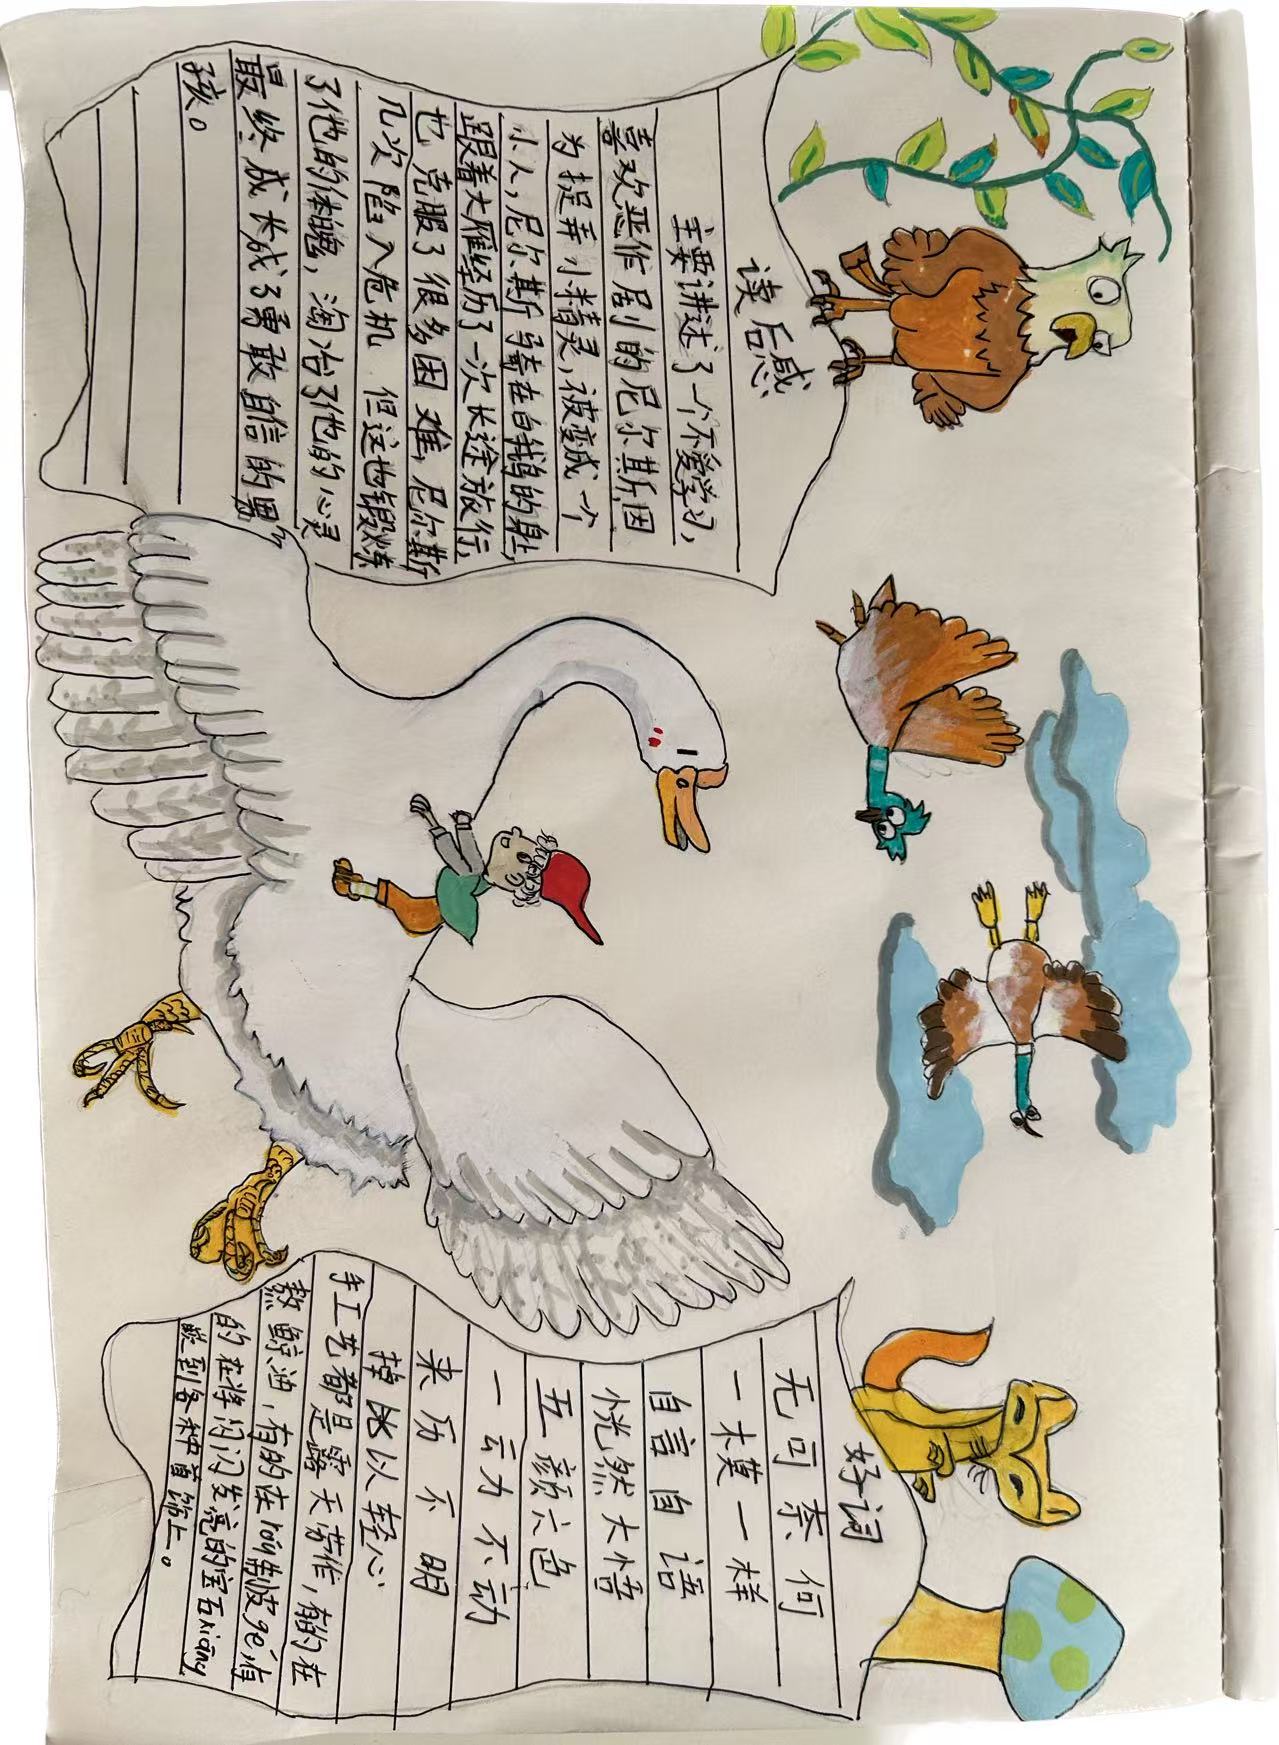 读后感
主要讲述了一个不爱学习，
喜欢恶作剧的尼尔斯因
为捉弄小精灵，被变成一个
小人，尼尔斯骑在白鹅的身上
跟着大雁经历了一次长途旅行，
也克服了很多困难，尼尔斯
几次陷入危机 但这也锻炼
了他的体魄，淘冶了他的心灵
最终成长成了勇敢自信的男
孩。
好词
无可奈何
一模一样
自言自语
恍然大悟
五颜六色
一云力不云力
来历不明
掉以轻心
手工艺都是露天劳作，有的在
熬鲸油，有的在róu制皮gé，有
的在将闪闪发亮的宝石xiāng
嵌到各种首饰上。